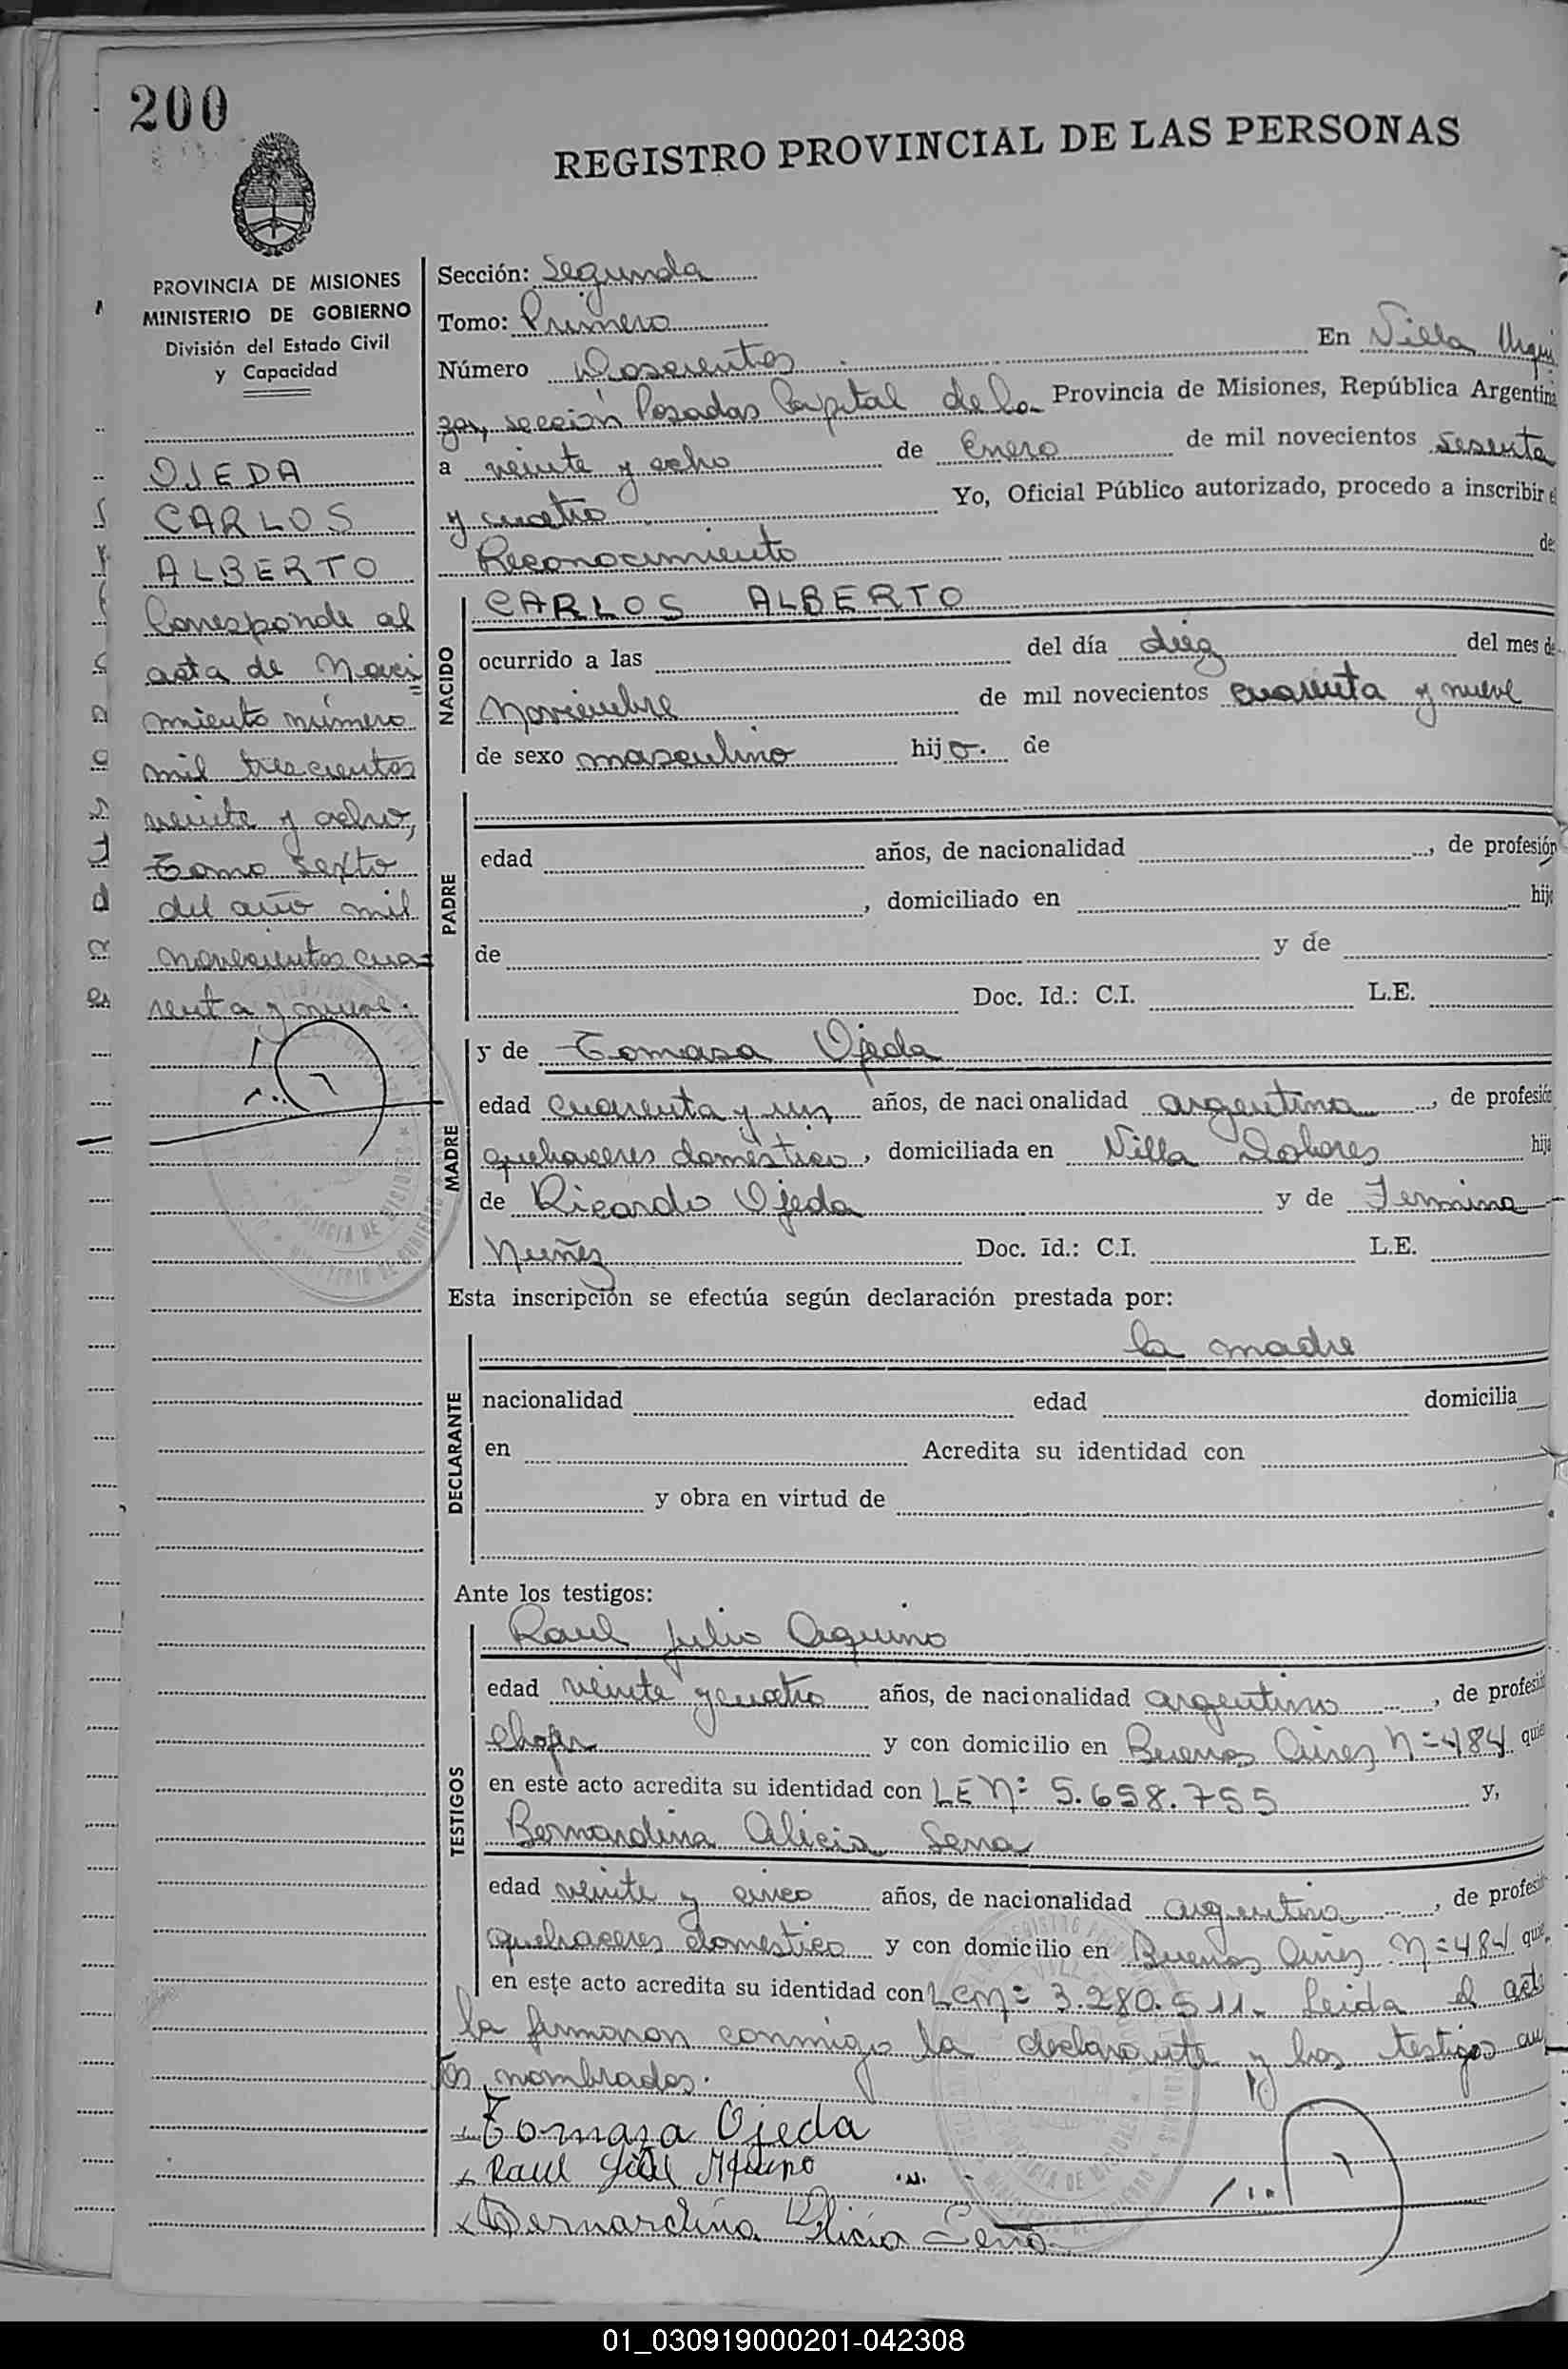 200
REGISTRO PROVINCIAL DE LAS PERSONAS
PROVINCIA DE MISIONES
MINISTERIO DE GOBIERNO
División del Estado Civil
y Capacidad
OJEDA
CARLOS
ALBERTO
Corresponde al
acta de Naci=
miento número
mil trescientos
veinte y ocho,
Tomo sexto
del año mil
novecientos cua=
renta y nueve.
Sección: Segunda
Tomo: Primero
Número Doscientos En Villa Urqui
za, sección Posadas Capital de la Provincia de Misiones, República Argentina
a veinte y ocho de Enero de mil novecientos sesenta
y cuatro Yo, Oficial Público autorizado, procedo a inscribir e
Reconocimiento de
NACIDO
CARLOS ALBERTO
ocurrido a las del día diez del mes de
Noviembre de mil novecientos cuarenta y nueve
de sexo masculino hijo. de
PADRE
edad años, de nacionalidad , de profesión
, domiciliado en hijo
de y de
Doc. Id.: C.I. L.E.
MADRE
y de Tomasa Ojeda
edad cuarenta y un años, de nacionalidad argentina, de profesión
quehaceres domestico, domiciliada en Villa Dolores hija
de Ricardo Ojeda y de Fermina
Nuñez Doc. Id.: C.I. L.E.
Esta inscripción se efectúa según declaración prestada por:
DECLARANTE
la madre
nacionalidad edad domicilia
en Acredita su identidad con
y obra en virtud de
Ante los testigos:
TESTIGOS
Raul Julio Aquino
edad veinte y cuatro años, de nacionalidad argentino, de profesió
chofer y con domicilio en Buenos Aires N=484 quie
en este acto acredita su identidad con LE Nº 5.658.755 y,
Bernardina Alicia Sena
edad veinte y cinco años, de nacionalidad argentina, de profesió
quehaceres domestico y con domicilio en Buenos Aires N=484 quie
en este acto acredita su identidad con LCNº 3.280.511. Leida el acta
la firmaron conmigo la declarante y los testigos an
tes nombrados.
Tomaza Ojeda
x Raul Aquino
x Bernardina Alicia Sena
01_030919000201-042308